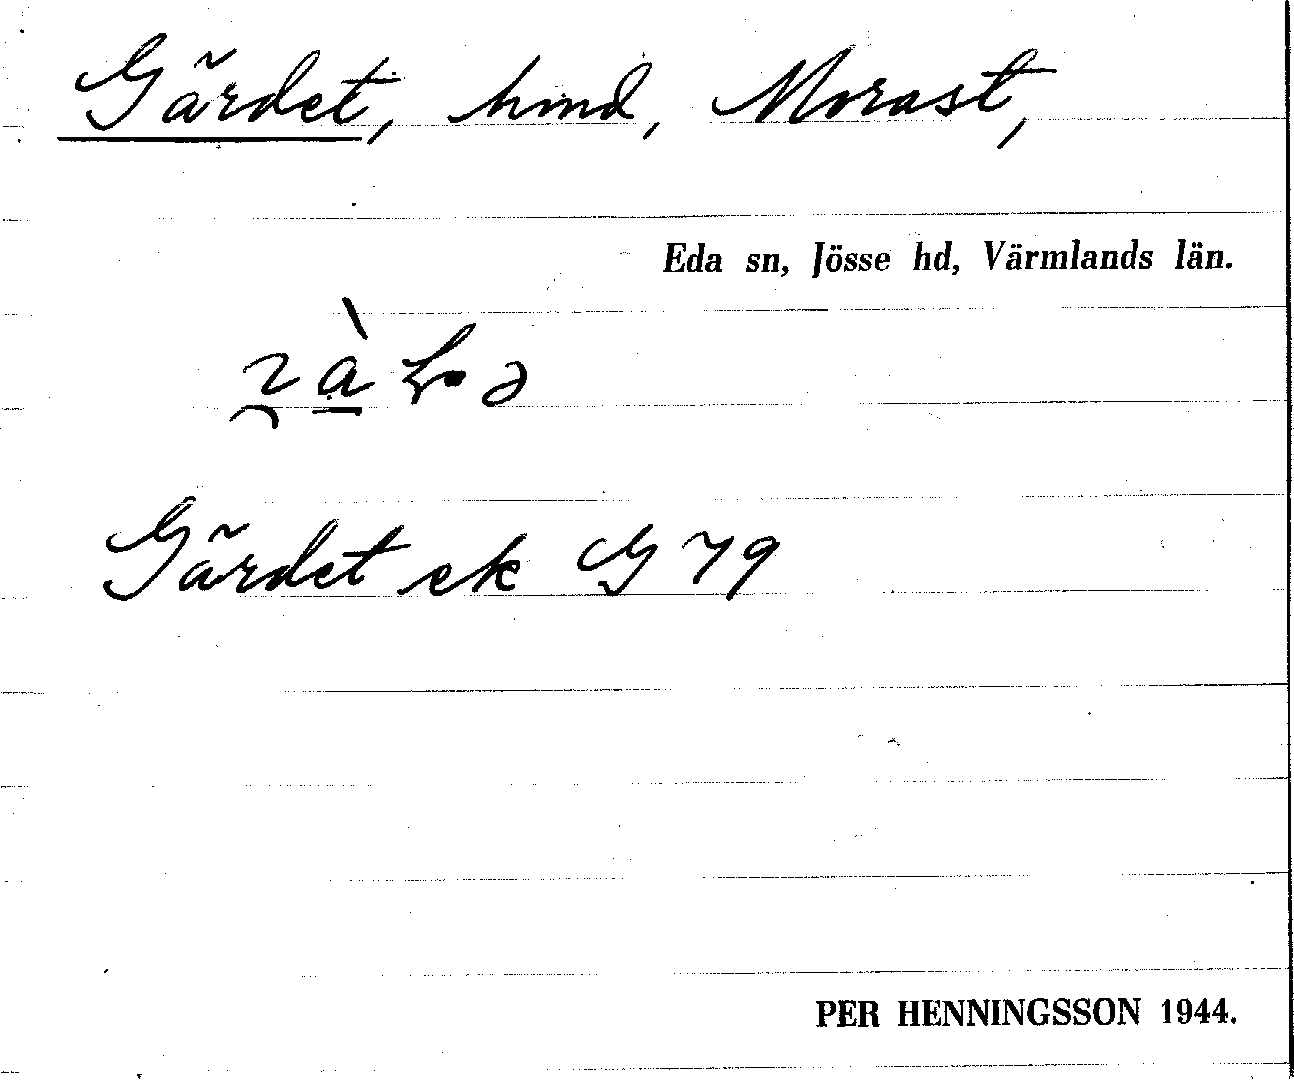 Gärdet, hmd, Morast,
Eda sn, Jösse hd, Värmlands län.
Gärdet ek G 79
PER HENNINGSSON 1944.